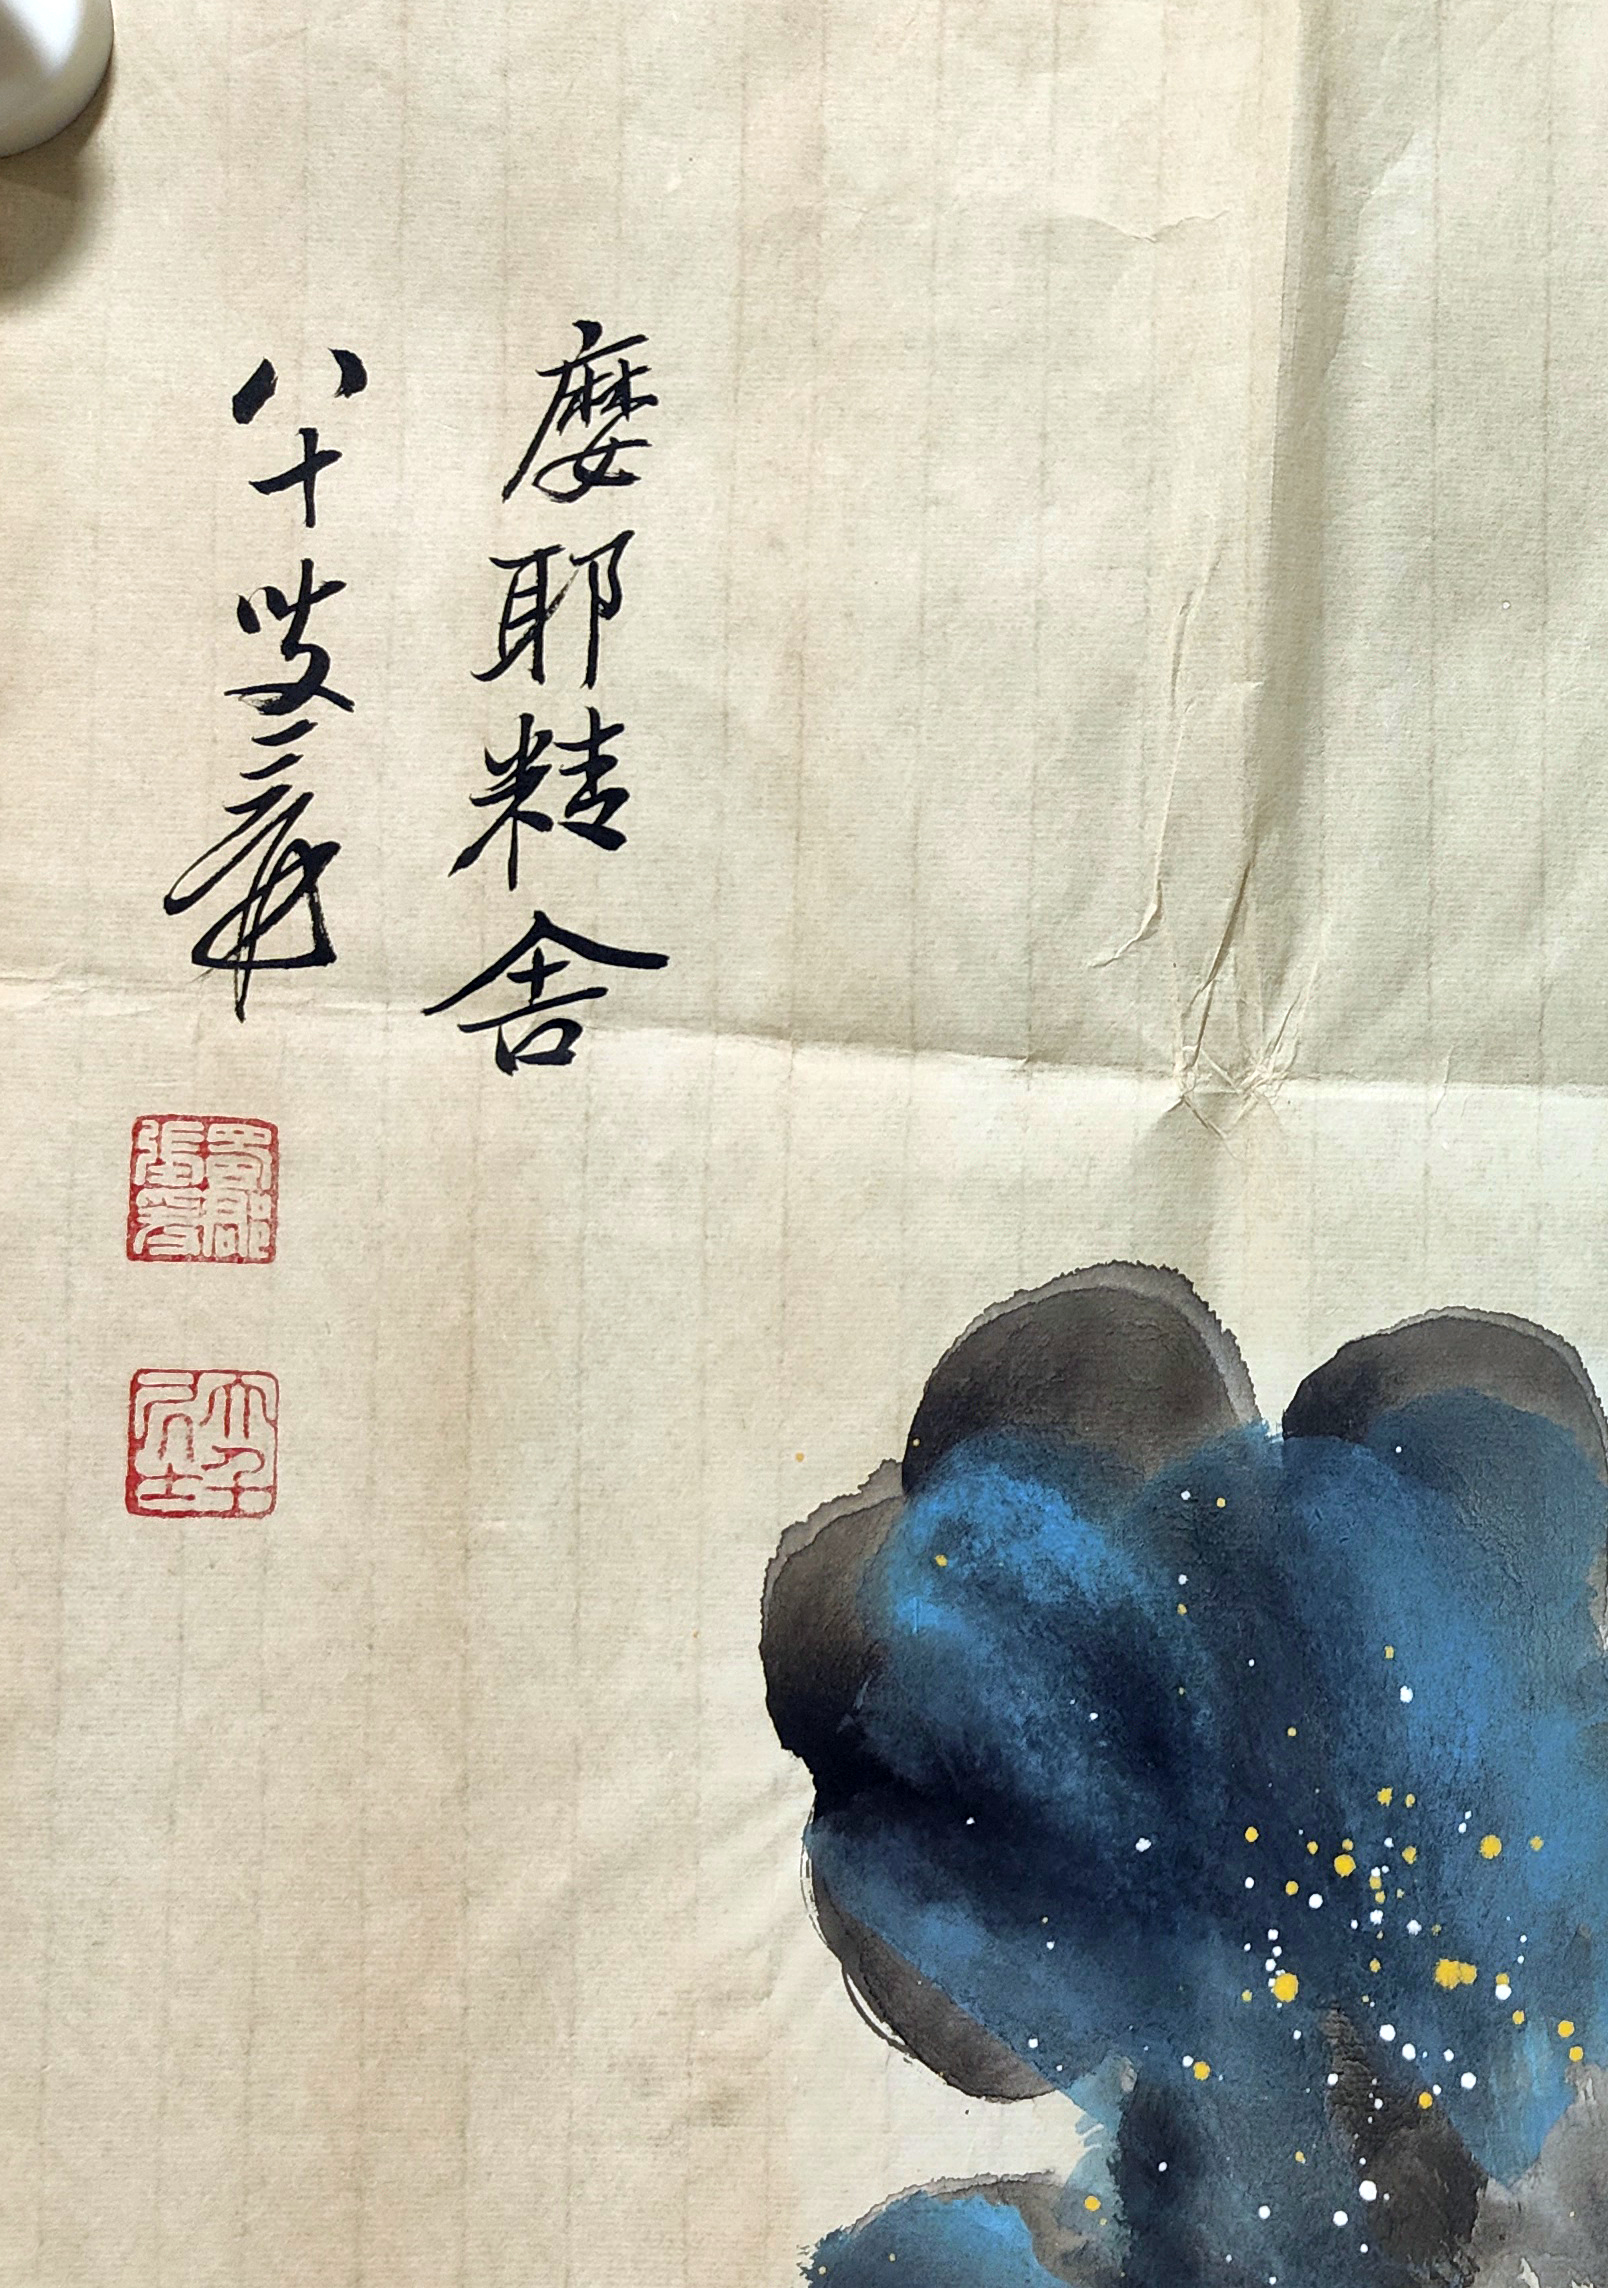 摩耶精舍
八十叟爰
蜀郡張爰
大千居士